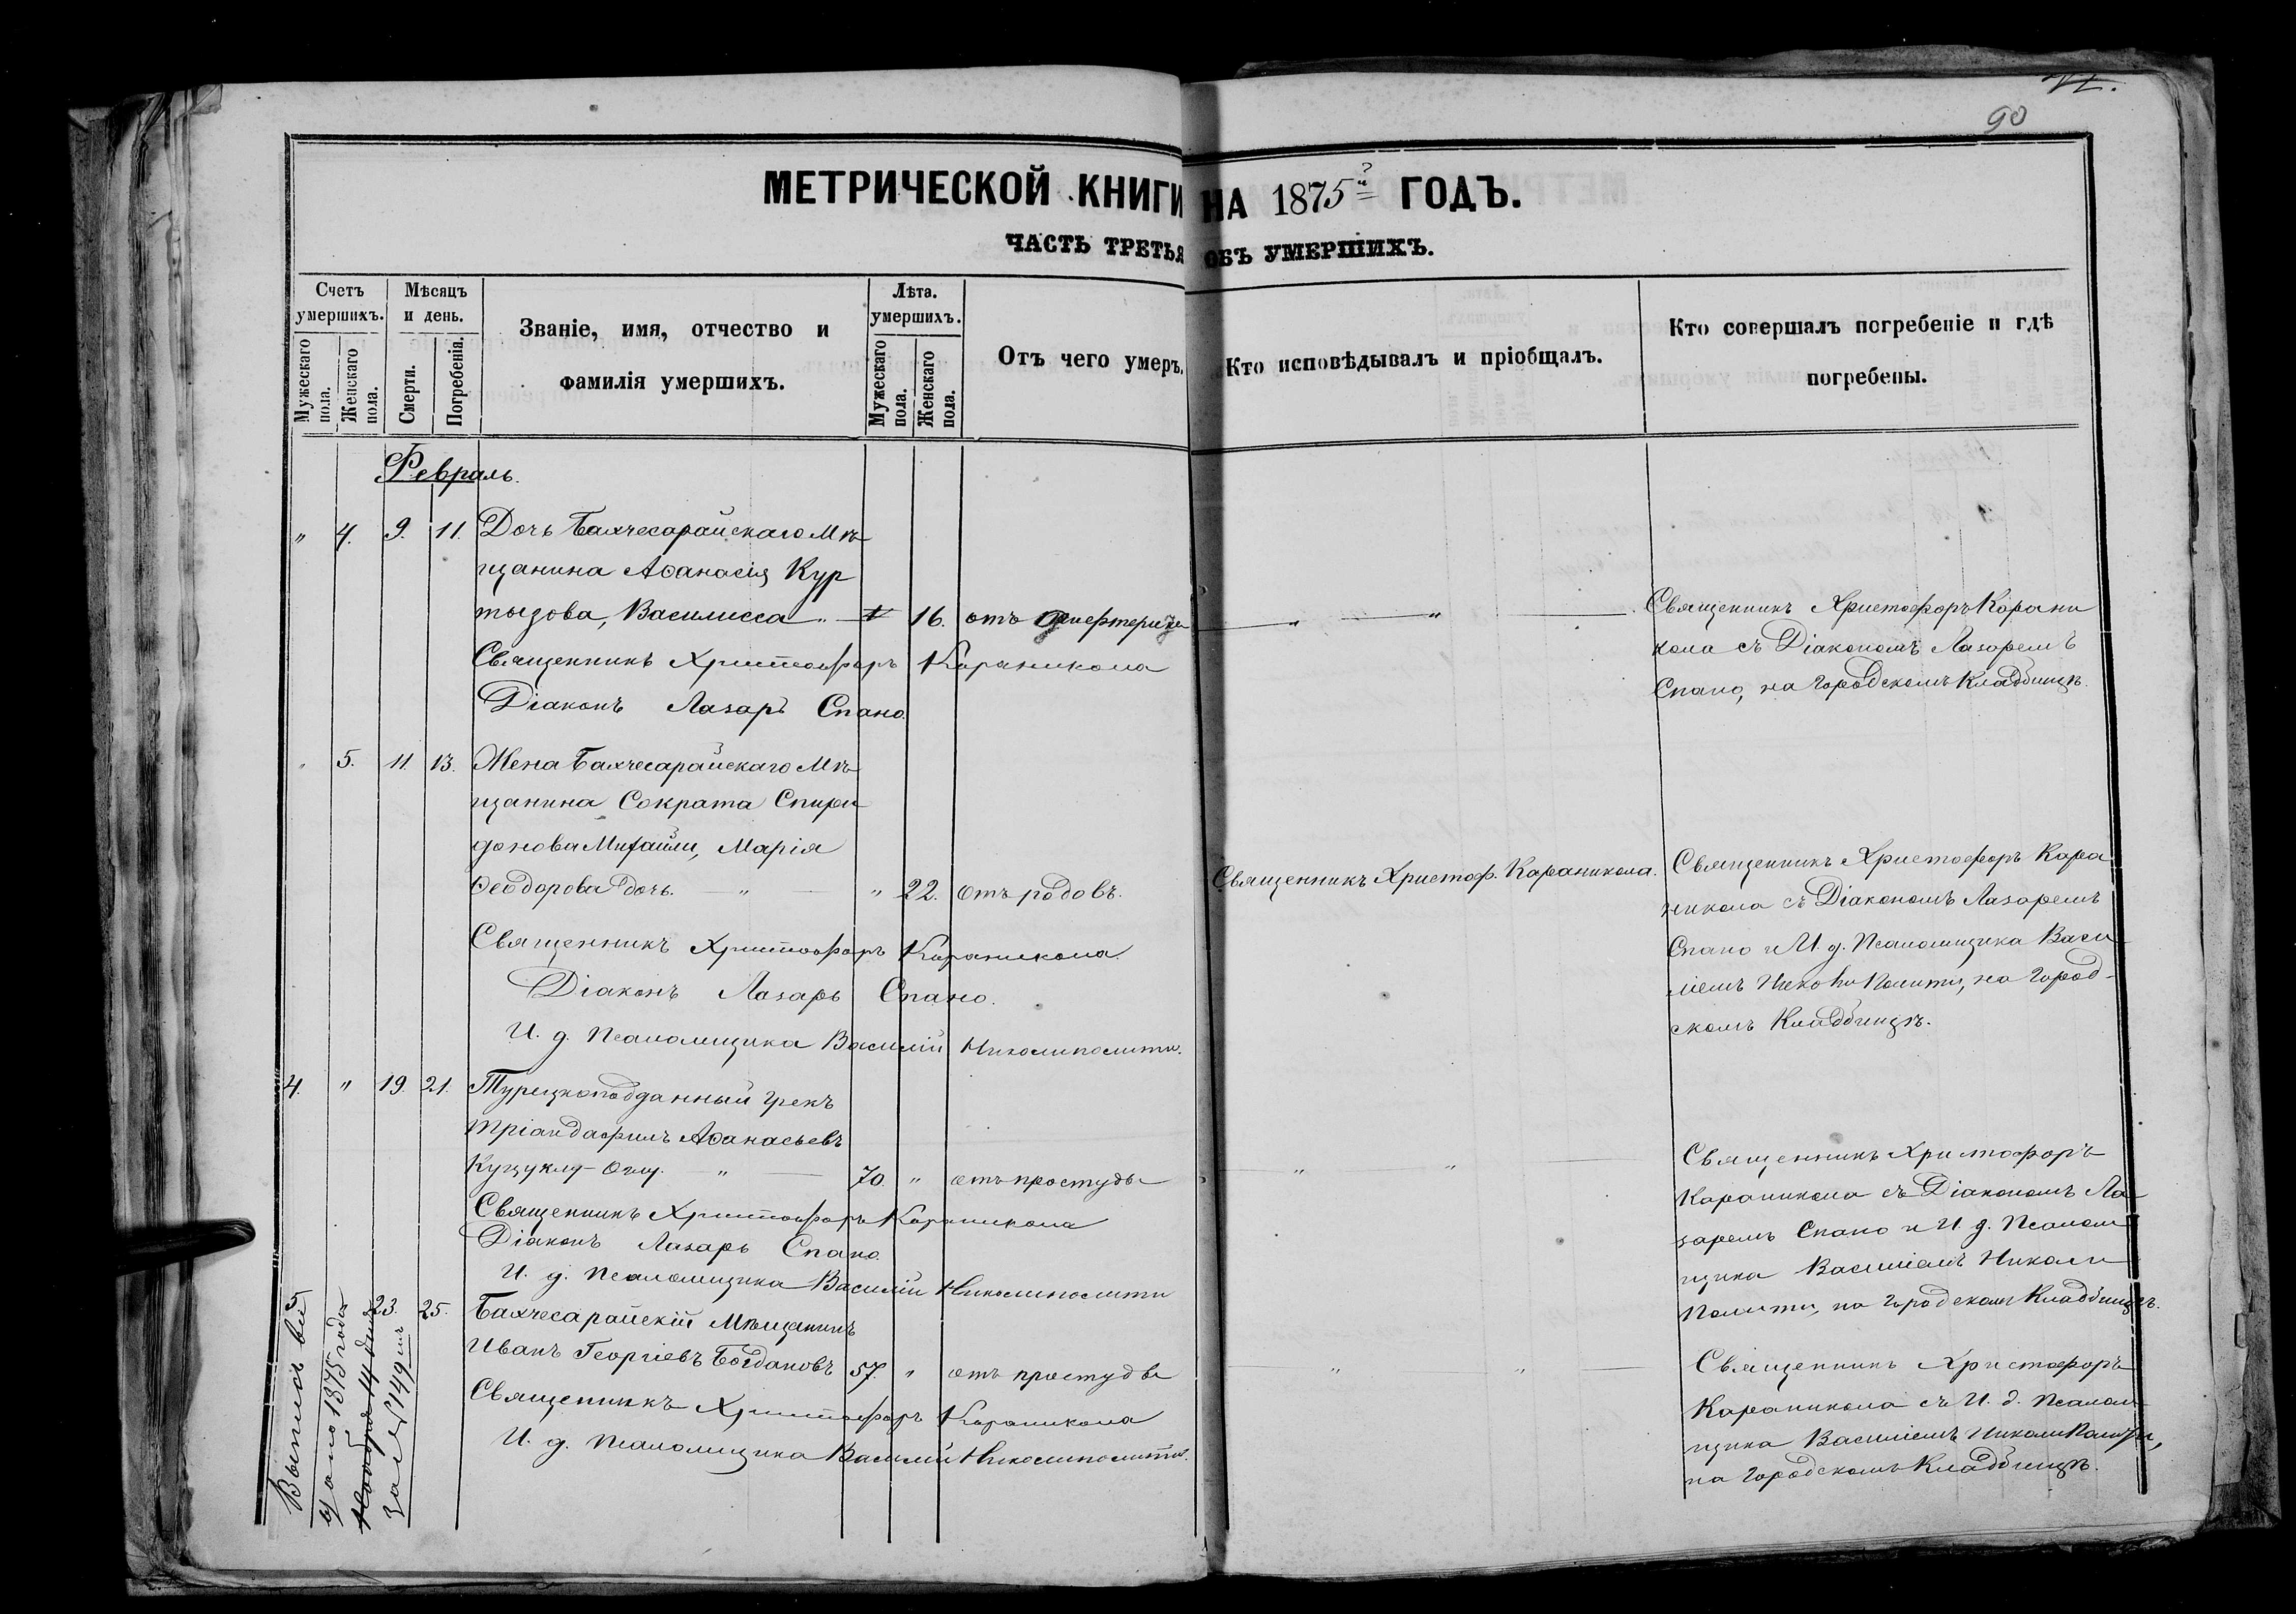 90
МЕТРИЧЕСКОЙ КНИГИ НА 1875й ГОДЪ.
ЧАСТЬ ТРЕТЬЯ ОБЪ УМЕРШИХЪ.
Счетъ умершихъ.
Мужескаго пола.
Женскаго пола.
Мѣсяцъ и день.
Смерти.
Погребенія.
Званіе, имя, отчество и
фамилія умершихъ.
Лѣта. умершихъ.
Мужескаго пола.
Женскаго пола.
Отъ чего умеръ.
Кто исповѣдывалъ и пріобщалъ.
Кто совершалъ погребеніе и гдѣ
погребены.
Февраль.
" 4. 9. 11. Дочь Бахчесарайскаго Мѣ
щанина Аѳанасія Кур
тызова, Василисса " 16. отъ
Священникъ Христофоръ Караникола
Діаконъ Лазаръ Спано.
Священникъ Христофоръ Карани
кола съ Діакономъ Лазаремъ
Спано, на Городскомъ Кладбищѣ.
" 5. 11 13. Жена Бахчесарайскаго Мѣ
щанина Сократа Спири
донова Михайли, Марія
Ѳеодорова дочь. " " 22. отъ родовъ.
Священникъ Христофоръ Караникола.
Діаконъ Лазаръ Спано.
И. д. Псаломщика Василій Николиполити.
Священникъ Христоф. Караникола.
Священникъ Христофоръ Кара
никола съ Діакономъ Лазаремъ
Спано и И. д. Псаломщика Васи
ліемъ Николи Полити, на Город-
скомъ Кладбищѣ.
4. " 19. 21. Турецкоподданный Грекъ
Тріандафилъ Аѳанасьевъ
" 70. " отъ простуды
Священникъ Христофоръ Караникола
Діаконъ Лазаръ Спано.
И. д. Псаломщика Василій Николиполити
" "
Священникъ Христофоръ
Караникола съ Діакономъ Ла
заремъ Спано и И. д. Псалом
щика Василіемъ Николи
Полити, на Городскомъ Кладбищѣ.
5. 23. 25. Бахчесарайскій Мѣщанинъ
Иванъ Георгіевъ Богдановъ 57. " отъ простуды
Священникъ Христофоръ Караникола
И. д. Псаломщика Василій Николиполити.
" "
Священникъ Христофоръ
Караникола съ И. д. Псалом
щика Василіемъ Николи Полити,
на Городскомъ Кладбищѣ.
Выпись вы
дано 1875 года
Ноября 14 дня
за № 149мъ